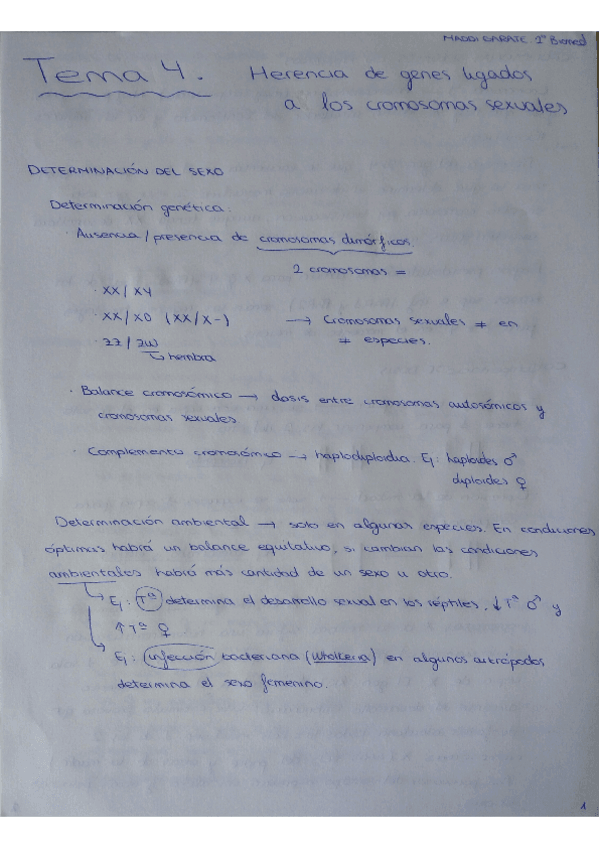 MADDI GARATE 1º Biomed
Tema 4. Herencia de genes ligados
a los cromosomas sexuales
DETERMINACIÓN DEL SEXO
Determinación genética:
· Ausencia / presencia de cromosomas dimórficos.
2 cromosomas =
· XX / XY
XX / XO (XX/X-) → Cromosomas sexuales ≠ en
· ZZ / ZW ≠ especies.
↳ hembra
· Balance cromosómico → dosis entre cromosomas autosómicos y
cromosomas sexuales
· Complemento cromosómico → haplodiploidia. Ej: haploides ♂
diploides ♀
Determinación ambiental → solo en algunas especies. En condiciones
óptimas habrá un balance equitativo, si cambian las condiciones
ambientales habrá más cantidad de un sexo u otro.
→ Ej: Tª determina el desarrollo sexual en los réptiles, ↓Tª ♂ y
↑Tª ♀
→ Ej: infección bacteriana (Wholkeria) en algunos artrópodos
determina el sexo femenino.
1